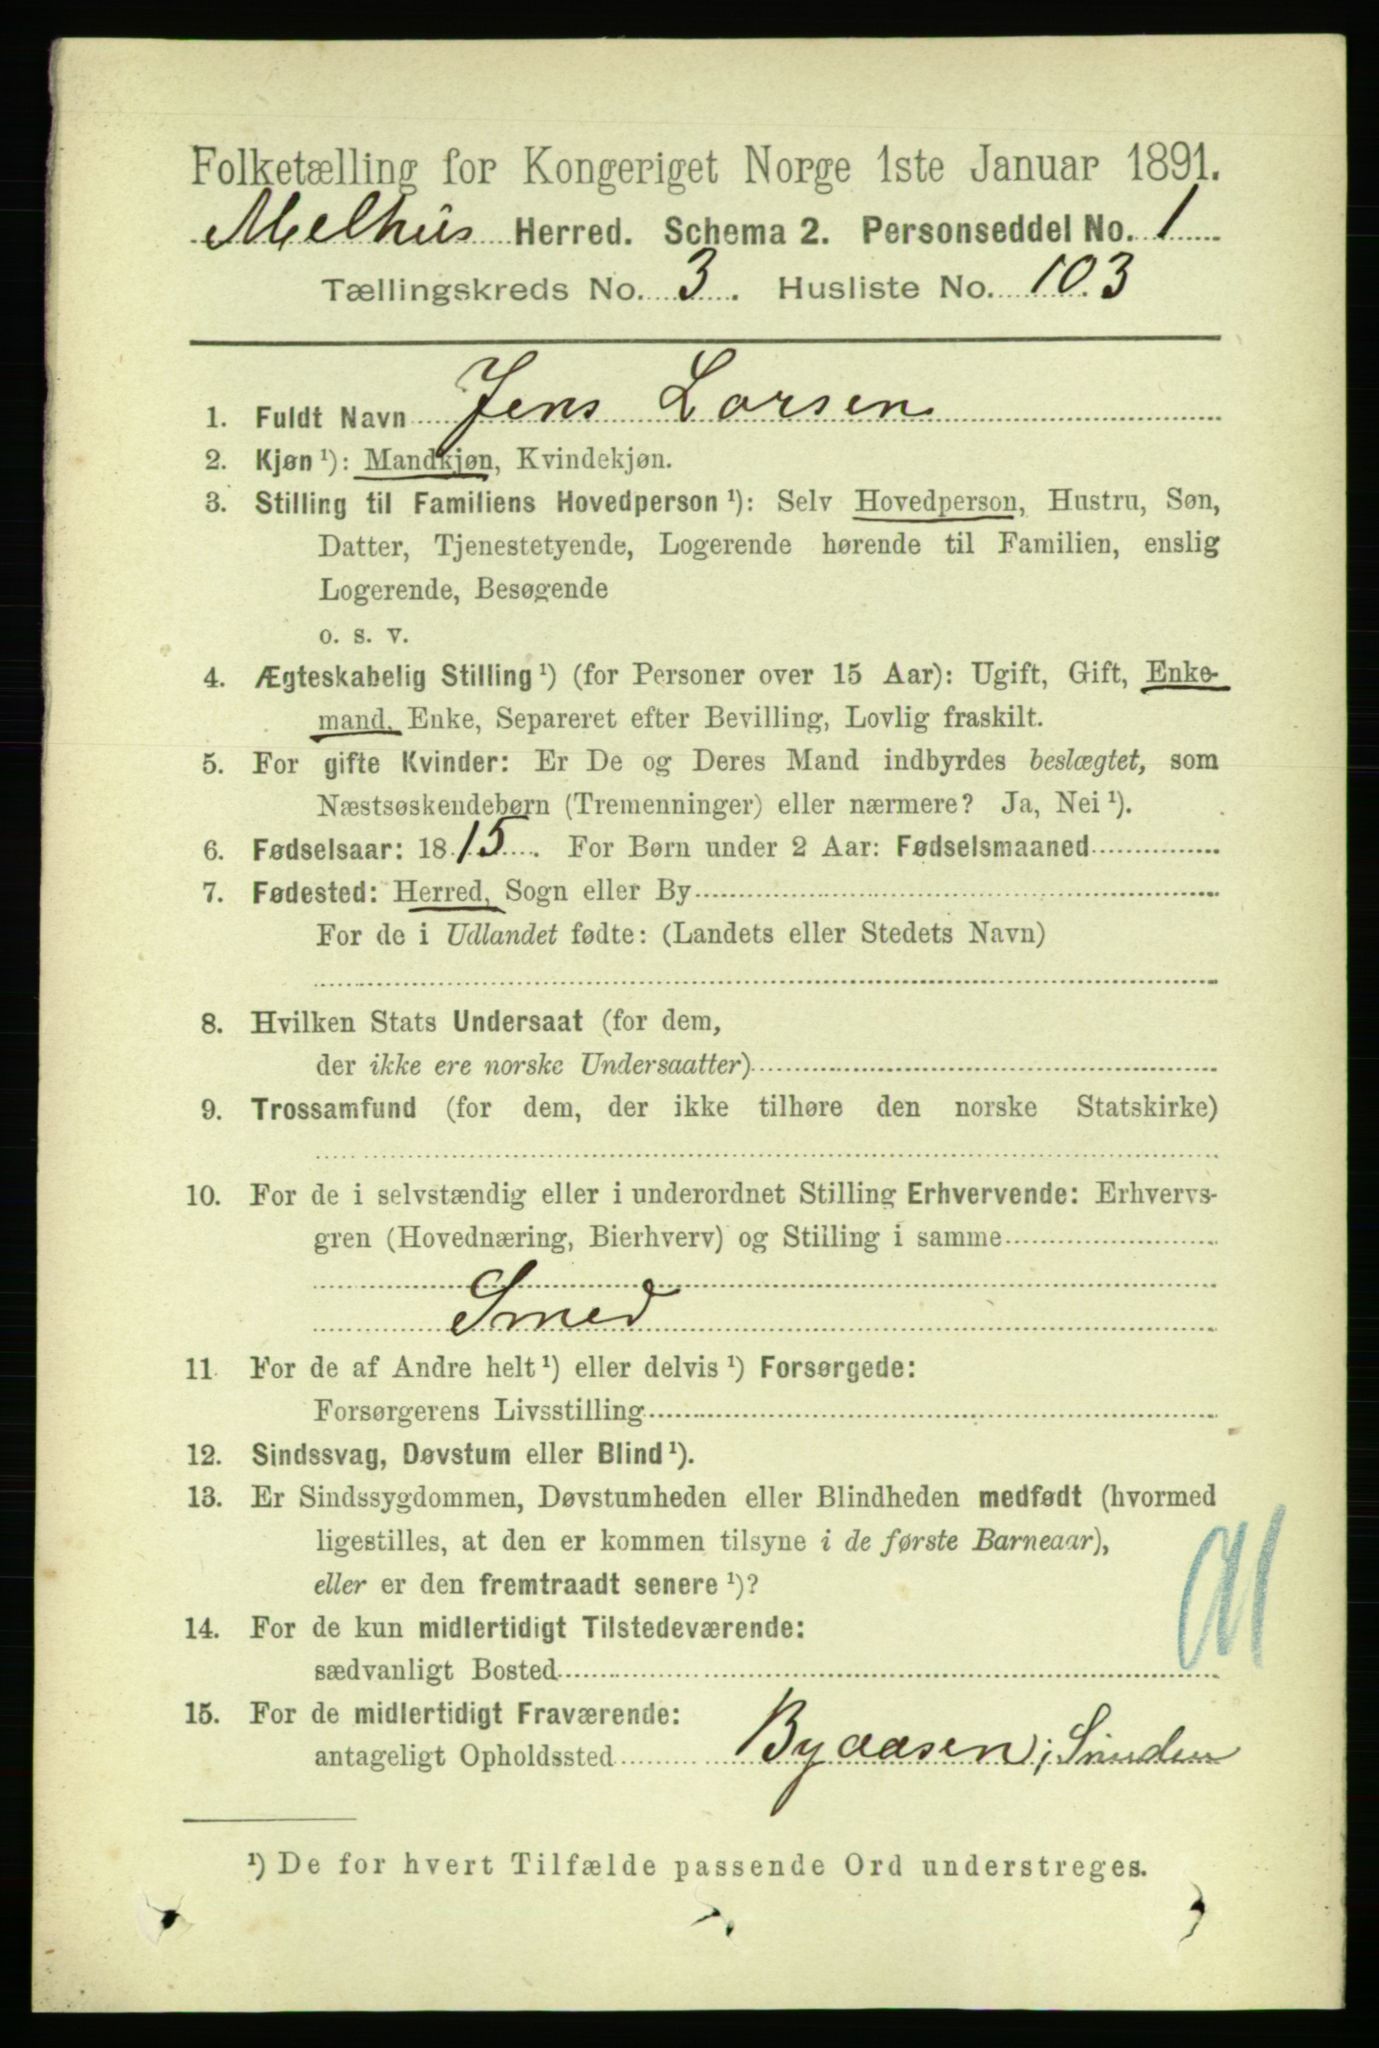 Folketælling for Kongeriget Norge 1ste Januar 1891.
Melhus Herred. Schema 2. Personseddel No. 1
Tællingskreds No. 3. Husliste No. 103
1. Fuldt Navn Jens Larsen
2. Kjøn ¹): Mandkjøn, Kvindekjøn.
3. Stilling til Familiens Hovedperson ¹): Selv Hovedperson, Hustru, Søn,
Datter, Tjenestetyende, Logerende hørende til Familien, enslig
Logerende, Besøgende
o. s. v.
4. Ægteskabelig Stilling ¹) (for Personer over 15 Aar): Ugift, Gift, Enke-
mand, Enke, Separeret efter Bevilling, Lovlig fraskilt.
5. For gifte Kvinder: Er De og Deres Mand indbyrdes beslægtet, som
Næstsøskendebørn (Tremenninger) eller nærmere? Ja, Nei ¹).
6. Fødselsaar: 1815. For Børn under 2 Aar: Fødselsmaaned
7. Fødested: Herred, Sogn eller By
For de i Udlandet fødte: (Landets eller Stedets Navn)
8. Hvilken Stats Undersaat (for dem,
der ikke ere norske Undersaatter)
9. Trossamfund (for dem, der ikke tilhøre den norske Statskirke)
10. For de i selvstændig eller i underordnet Stilling Erhvervende: Erhvervs-
gren (Hovednæring, Bierhverv) og Stilling i samme
Smed
11. For de af Andre helt ¹) eller delvis ¹) Forsørgede:
Forsørgerens Livsstilling
12. Sindssvag, Døvstum eller Blind ¹).
13. Er Sindssygdommen, Døvstumheden eller Blindheden medfødt (hvormed
ligestilles, at den er kommen tilsyne i de første Barneaar),
eller er den fremtraadt senere ¹)?
14. For de kun midlertidigt Tilstedeværende:
sædvanligt Bosted
15. For de midlertidigt Fraværende:
antageligt Opholdssted Byaasen;
¹) De for hvert Tilfælde passende Ord understreges.